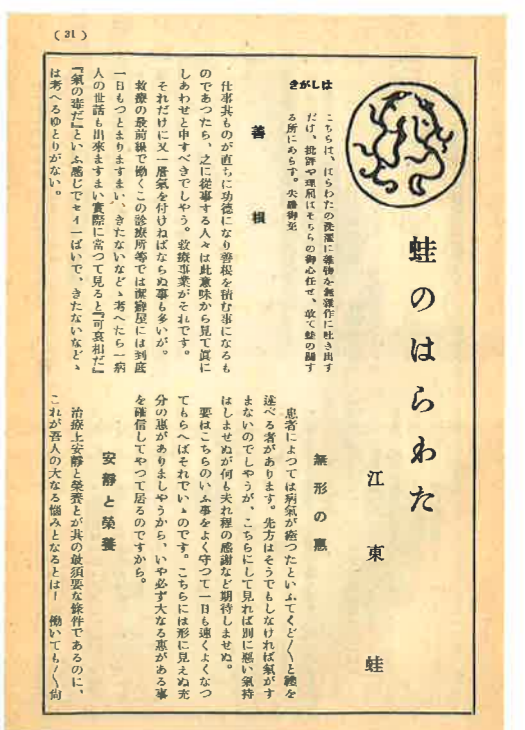 ( 31 )
蛙のはらわた
江東蛙
はしがき
こちらは、はらわたの洗濯に雑物を無雑作に吐き出す
だけ、批評や理屈はそちらの御心任せ、敢て蛙の關す
る所にあらず。失禮御免
善根
仕事其ものが直ちに功德になり善根を積む事になるも
のであつたら、之に從事する人々は此意味から見て眞に
しあわせと申すべきでしやう。救療事業がそれです。
それだけに又一層氣を付けねばならぬ事も多いが。
救療の最前線で働くこの診療所等では潔癖屋には到底
一日もつとまりますまい、きたないなどゝ考へたら一病
人の世話も出來ますまい實際に當つて見ると『可哀相だ』
『氣の毒だ』といふ感じでセイ一ぱいで、きたないなどゝ
は考へるゆとりがない。
無形の惠
患者によつては病氣が癒つたといふてくど／＼と禮を
述べる者があります。先方はそうでもしなければ氣がす
まないのでしやうが、こちらにして見れば別に惡い氣持
はしませぬが何も夫れ程の感謝など期待しませぬ。
要はこちらのいふ事をよく守つて一日も速くよくなつ
てもらへばそれでいゝのです。こちらには形に見えぬ充
分の惠がありましやうから、いや必ず大なる惠がある事
を確信してやつて居るのですから。
安靜と榮養
治療上安靜と榮養とが其の最須要な條件であるのに、
これが吾人の大なる惱みとなるとは！ 働いても／＼尙